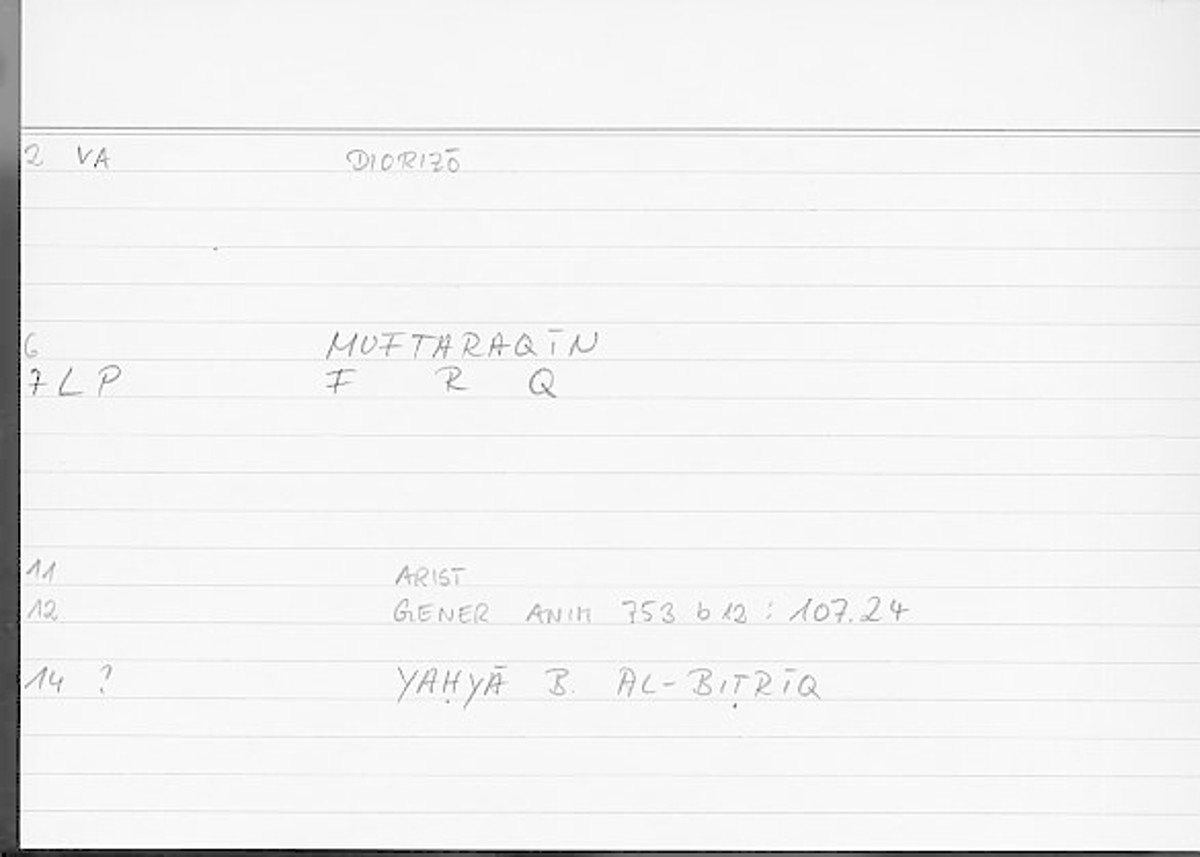 2 VA DIORIZŌ
6 MUFTARAQĪN
7 L P F R Q
11 ARIST
12 GENER ANIM 753 b 12 : 107.24
14 ? YAḤYĀ B. AL-BIṬRĪQ